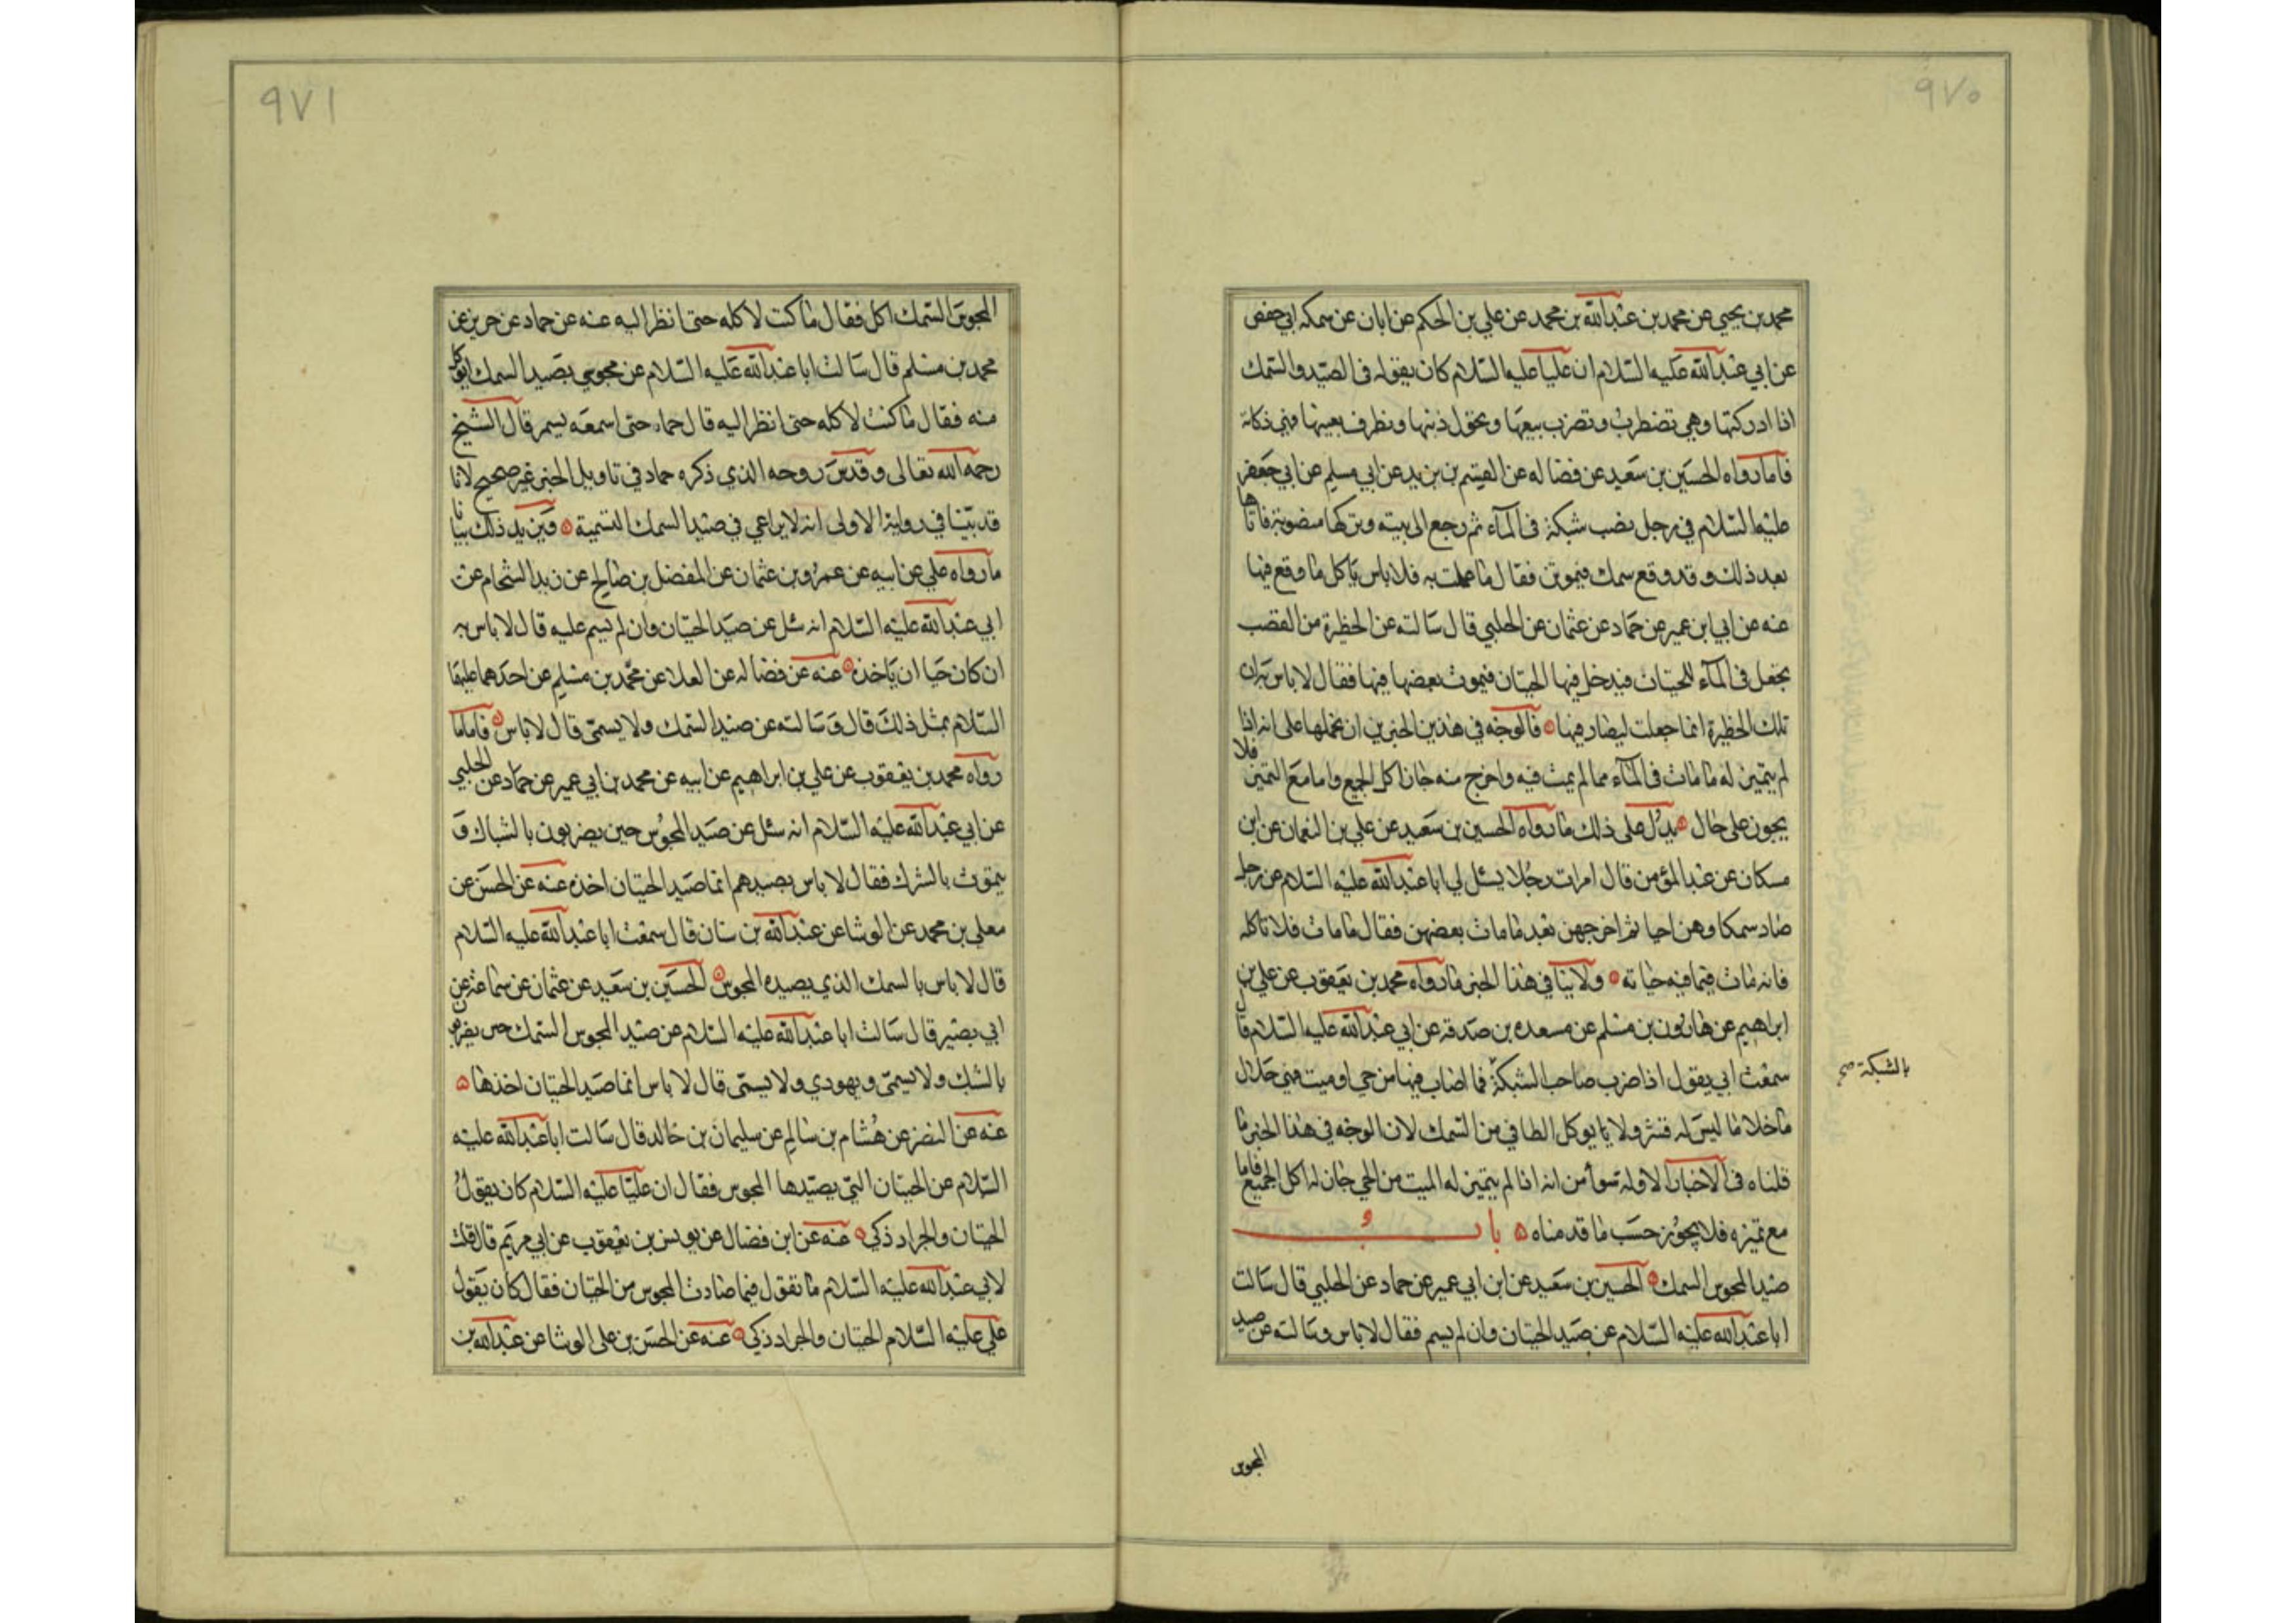 ٩٧٠
محمد بن يحيى عن محمد بن عبد الله بن محمد عن علي بن الحكم عن ابان عن سمكه ابي حفص
عن ابي عبد الله عليه السلام ان عليا عليه السلام كان يقول في الصيد والسمك
اذا ادركتها وهي تضطرب وتضرب بيدها وتحرك ذنبها وتطرف بعينها فهي ذكاته
فاما رواه الحسين بن سعيد عن فضاله عن القسم بن بريد عن ابي مسلم عن ابي جعفر
عليه السلام في رجل نصب شبكة في الماء ثم رجع الى بيته وتركها منصوبة فاتاها
بعد ذلك وقد وقع سمك فيموتن فقال ما عملت به فلا باس ياكل ما وقع فيها
عنه عن ابي ابن عمير عن حماد عن عثمان عن الحلبي قال سالته عن الحظيرة من القصب
يجعل في الماء للحيتان فيدخل فيها الحيتان فيموت بعضها فيها فقال لا باس به ان
تلك الحظيرة انما جعلت ليصاد فيها فالوجه في هذين الخبرين ان نحملها على انه اذا
لم يتميز له ما مات في الماء مما لم يمت فيه واخرج منه جاز اكل الجميع واما مع التميز فلا
يجوز على حال يدل على ذلك ما رواه الحسين بن سعيد عن علي بن النعمان عن ابن
مسكان عن عبد المؤمن قال امرت رجلا يسئل لي ابا عبد الله عليه السلام عن رجل
صاد سمكا وهن احيا ثم اخرجهن بعد ما مات بعضهن فقال ما مات فلا تاكله
فانه مات فيما فيه حياته ولا ينافي هذا الخبر ما رواه محمد بن يعقوب عن علي بن
ابراهيم عن هارون بن مسلم عن مسعده بن صدقه عن ابي عبد الله عليه السلام قال
سمعت ابي يقول اذا ضرب صاحب الشبكة فما اصاب فيها من حي او ميت فهي حلال
بالشبكة صح
ما خلا ما ليس له قشر ولا يؤكل الطافي من السمك لان الوجه في هذا الخبر ما
قلناه في الاخبار الاوله سوا من انه اذا لم يتميز له الميت من الحي جاز له اكل الجميع فاما
مع تميزه فلا يجوز حسب ما قدمناه باب
صيد المجوس السمك الحسين بن سعيد عن ابن ابي عمير عن حماد عن الحلبي قال سالت
ابا عبد الله عليه السلام عن صيد الحيتان وان لم يسم فقال لا باس وسالته عن صيد
المجوس
٩٧١
المجوس السمك اكل فقال ما كنت لاكله حتى انظر اليه عنه عن حماد عن حريز عن
محمد بن مسلم قال سالت ابا عبد الله عليه السلام عن مجوسي يصيد السمك ايؤكل
منه فقال ما كنت لاكله حتى انظر اليه قال حماد حتى اسمعه يسم قال الشيخ
رحمه الله تعالى وقدس روحه الذي ذكره حماد في تاويل الخبر غير صحيح لانا
قد بينا في رواية الاولى انه لا يراعي في صيد السمك التسمية ويزيد ذلك بيانا
ما رواه علي عن ابيه عن عمرو بن عثمان عن المفضل بن صالح عن زيد الشحام عن
ابي عبد الله عليه السلام انه سئل عن صيد الحيتان وان لم يسم عليه قال لا باس به
ان كان حيا ان ياخذه عنه عن فضاله عن العلا عن محمد بن مسلم عن احدهما عليهما
السلام بمثل ذلك قال وسالته عن صيد السمك ولا يسمى قال لا باس فاما ما
رواه محمد بن يعقوب عن علي بن ابراهيم عن ابيه عن محمد بن ابي عمير عن حماد عن الحلبي
عن ابي عبد الله عليه السلام انه سئل عن صيد المجوس حين يضربون بالشباك و
يتموت بالشرك فقال لا باس بصيدهم انما صيد الحيتان اخذه عنه عن الحسن عن
معلى بن محمد عن الوشا عن عبد الله بن سنان قال سمعت ابا عبد الله عليه السلام
قال لا باس بالسمك الذي يصيده المجوس الحسين بن سعيد عن عثمان عن سماعه عن
ابي بصير قال سالت ابا عبد الله عليه السلام عن صيد المجوس السمك حين يضربون
بالشبك ولا يسمى ويهودي ولا يسمى قال لا باس انما صيد الحيتان اخذها
عنه عن النضر عن هشام بن سالم عن سليمان بن خالد قال سالت ابا عبد الله عليه
السلام عن الحيتان التي يصيدها المجوس فقال ان عليا عليه السلام كان يقول
الحيتان والجراد ذكي عنه عن ابن فضال عن يونس بن يعقوب عن ابي مريم قال قلت
لابي عبد الله عليه السلام ما تقول فيما صادت المجوس من الحيتان فقال كان يقول
علي عليه السلام الحيتان والجراد ذكي عنه عن الحسن بن علي الوشا عن عبد الله بن